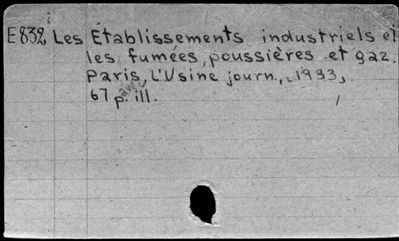 E832 Les Établissements industriels et
les fumées, poussières et gaz.
Paris, L'Usine journ., 1933,
67 p. avec ill.